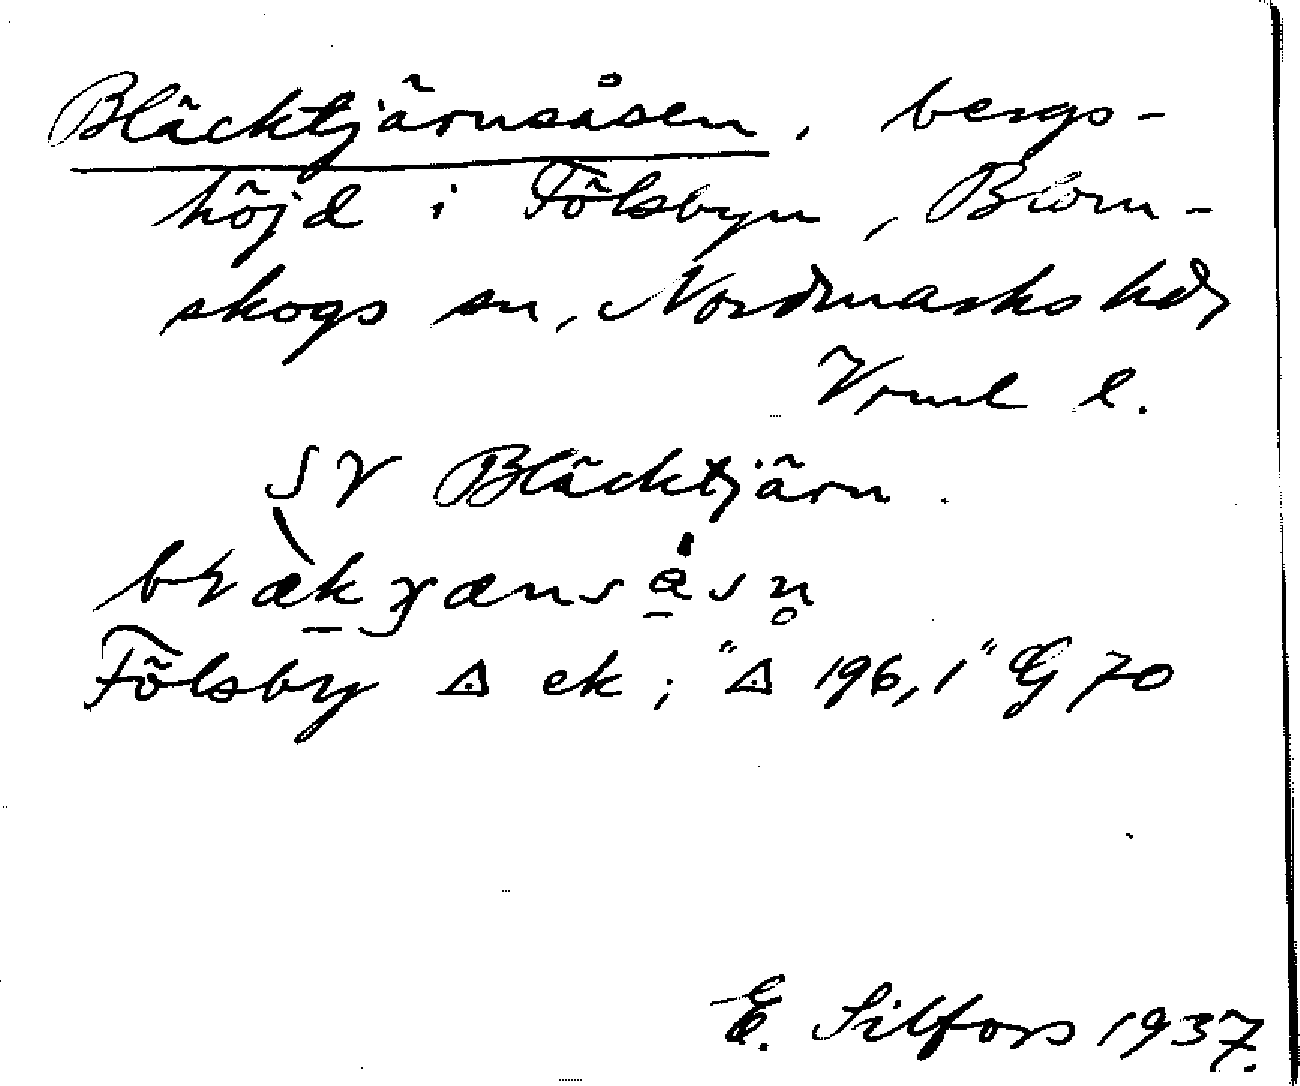 Bläcktjärnsåsen, bergs-
höjd i Fölsbyn, Blom-
skogs sn, Nordmarks hd,
Vrml l.
SV Bläcktjärn.
Fölsby ◬ ek; "◬ 196,1" G 70
E. Silfors 1937.